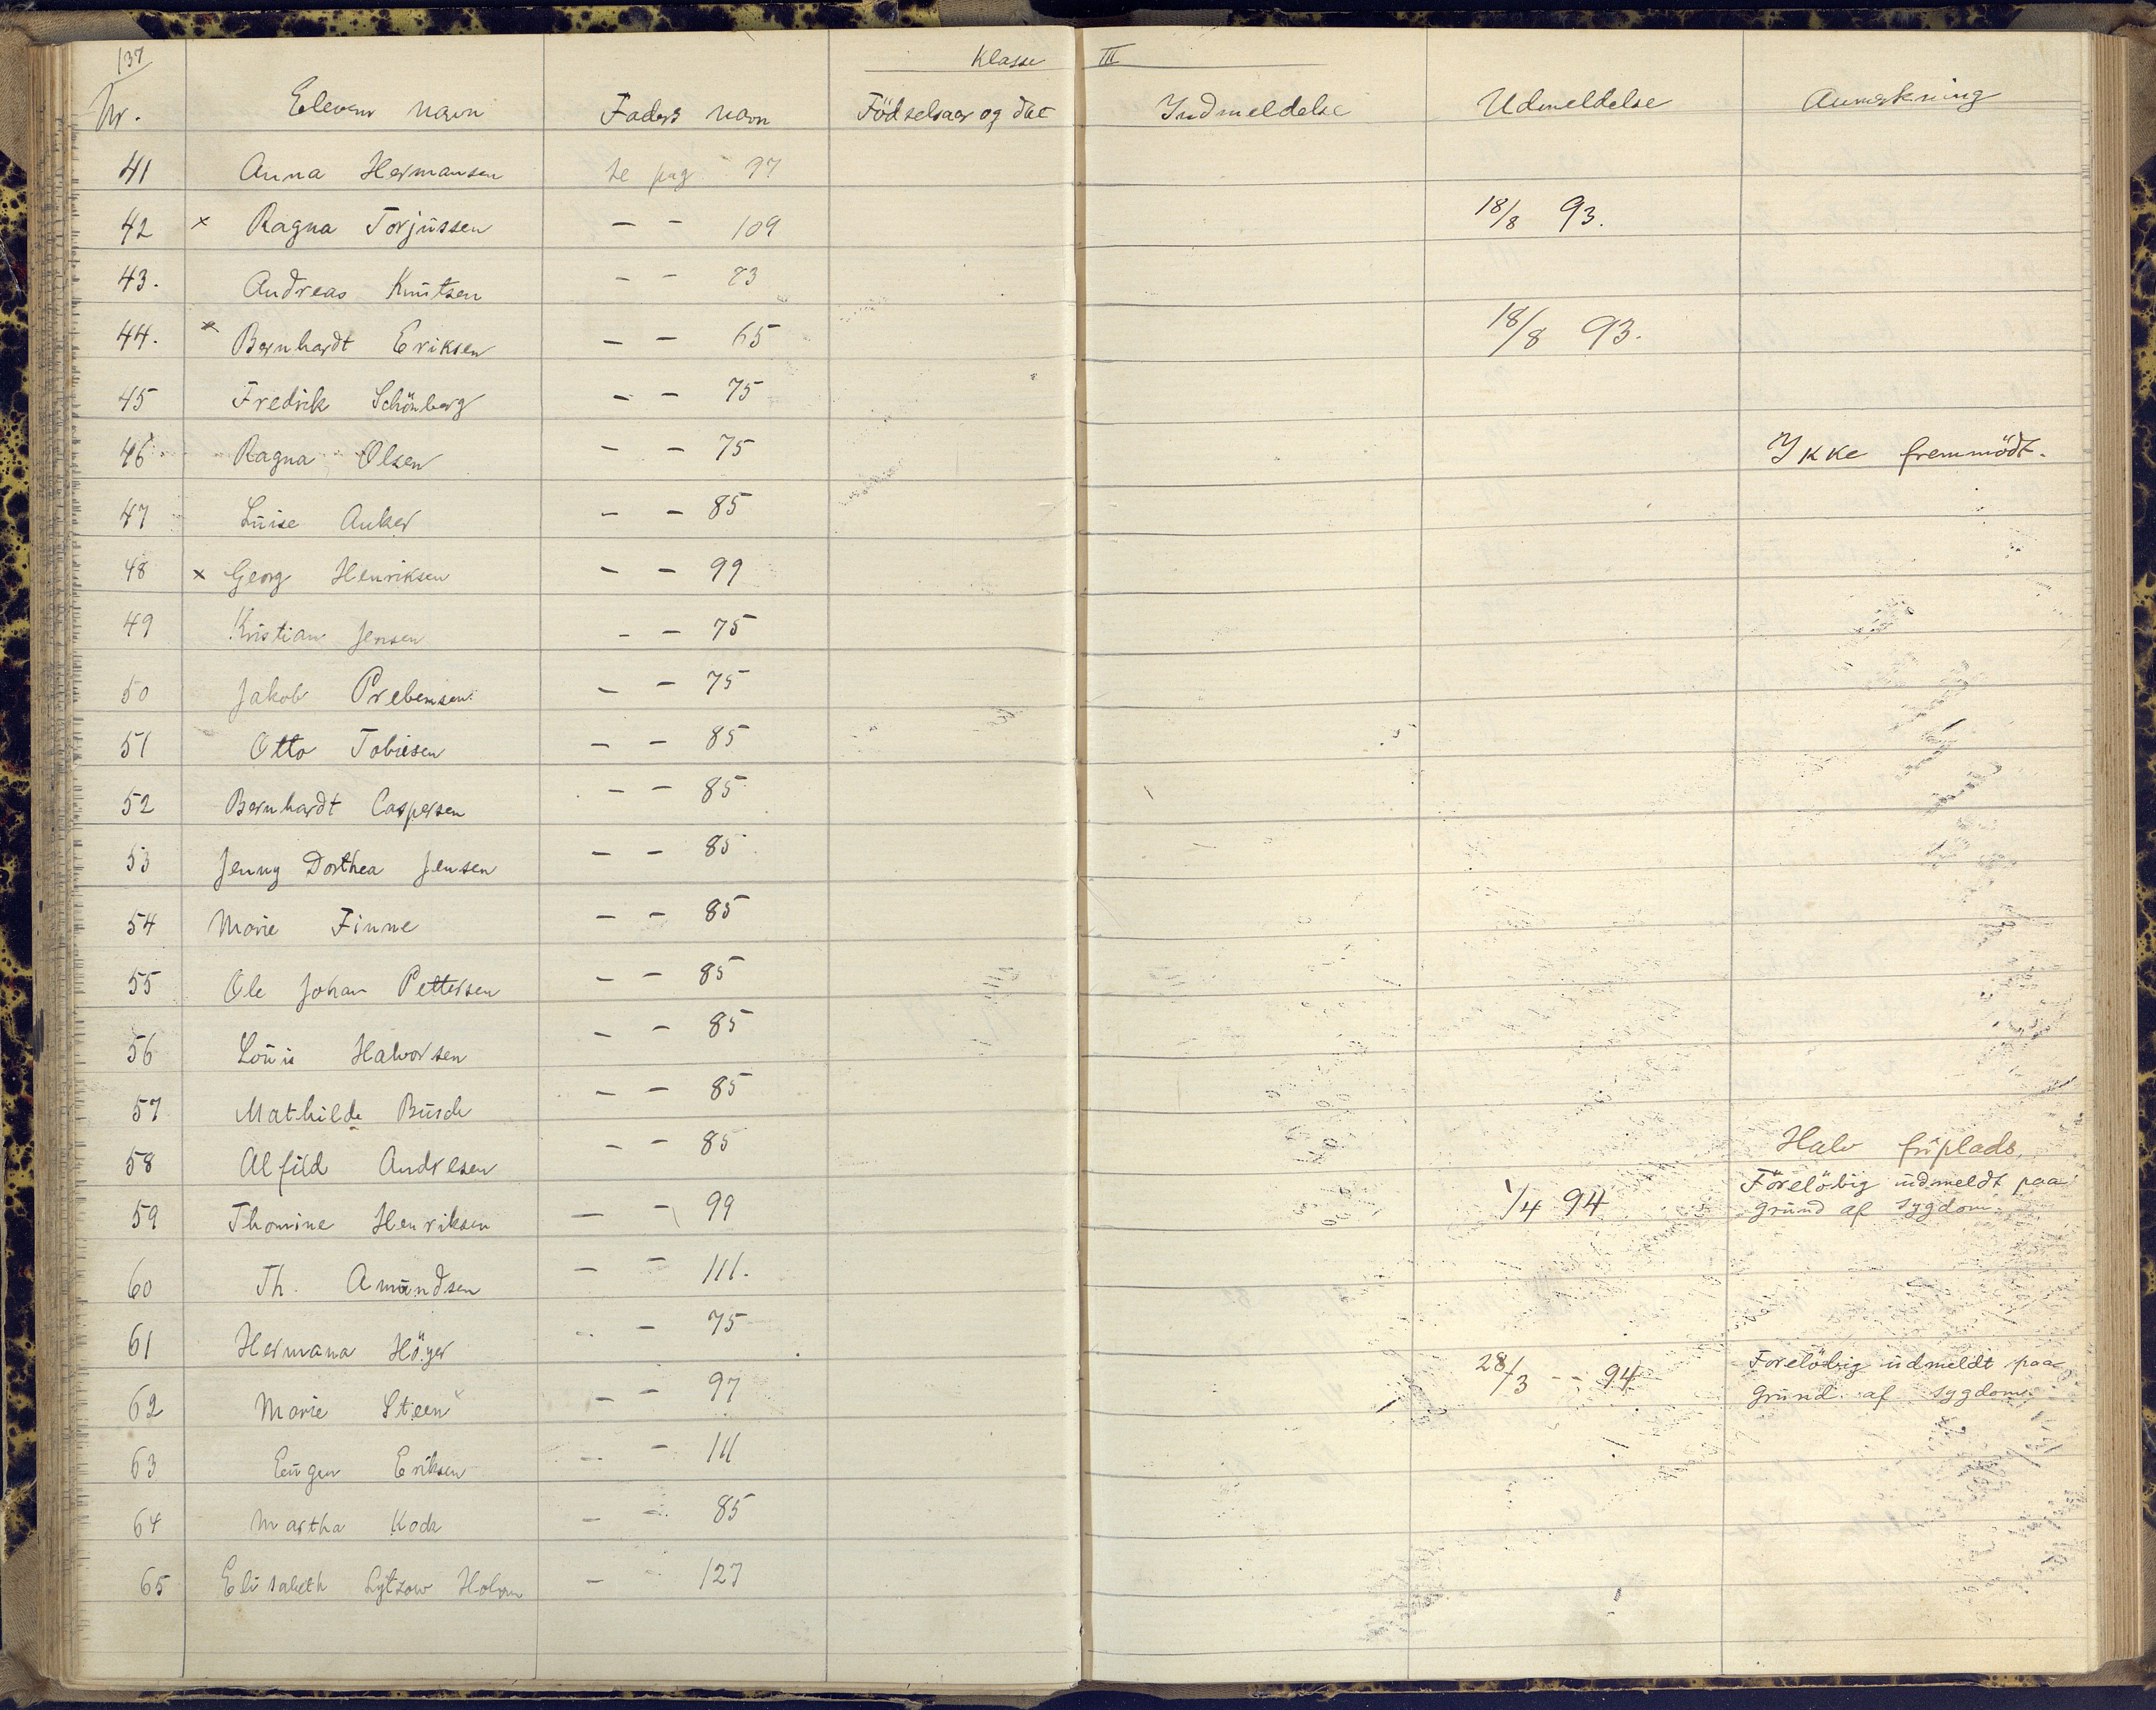 137
Klasse III
Nr. Elevens navn Faders navn Födselsaar og dat Indmeldelse Udmeldelse Anmerkning
41 Anna Hermansen se pag 97
42 x Ragna Torjussen — — 109 18/8 93.
43. Andreas Knutsen — — 83
44. x Bernhardt Eriksen — — 65 18/8 93.
45 Fredrik Schönberg — — 75
46 Ragna Olsen — — 75 Ikke fremmödt.
47 Luise Anker — — 85
48 x Georg Henriksen — — 99
49 Kristian Jensen — — 75
50 Jakob Prebensen — — 75
51 Otto Tobiesen — — 85
52 Bernhardt Caspersen — — 85
53 Jenny Dorthea Jensen — — 85
54 Marie Finne — — 85
55 Ole Johan Pettersen — — 85
56 Louis Halvorsen — — 85
57 Mathilde Busch — — 85
58 Alfild Andresen — — 85 Halv friplads.
59 Thomine Henriksen — — 99 1/4 94 Förelöbig udmeldt paa
grund af sygdom.
60 Th. Amundsen — — 111.
61 Hermana Höyer — — 75
62 Marie Steen — — 97 28/3 -- 94 Forelöbig udmeldt paa
grund af sygdom.
63 Eugen Eriksen — — 111
64 Martha Koch — — 85
65 Elisabeth Lytzow Holm — 123